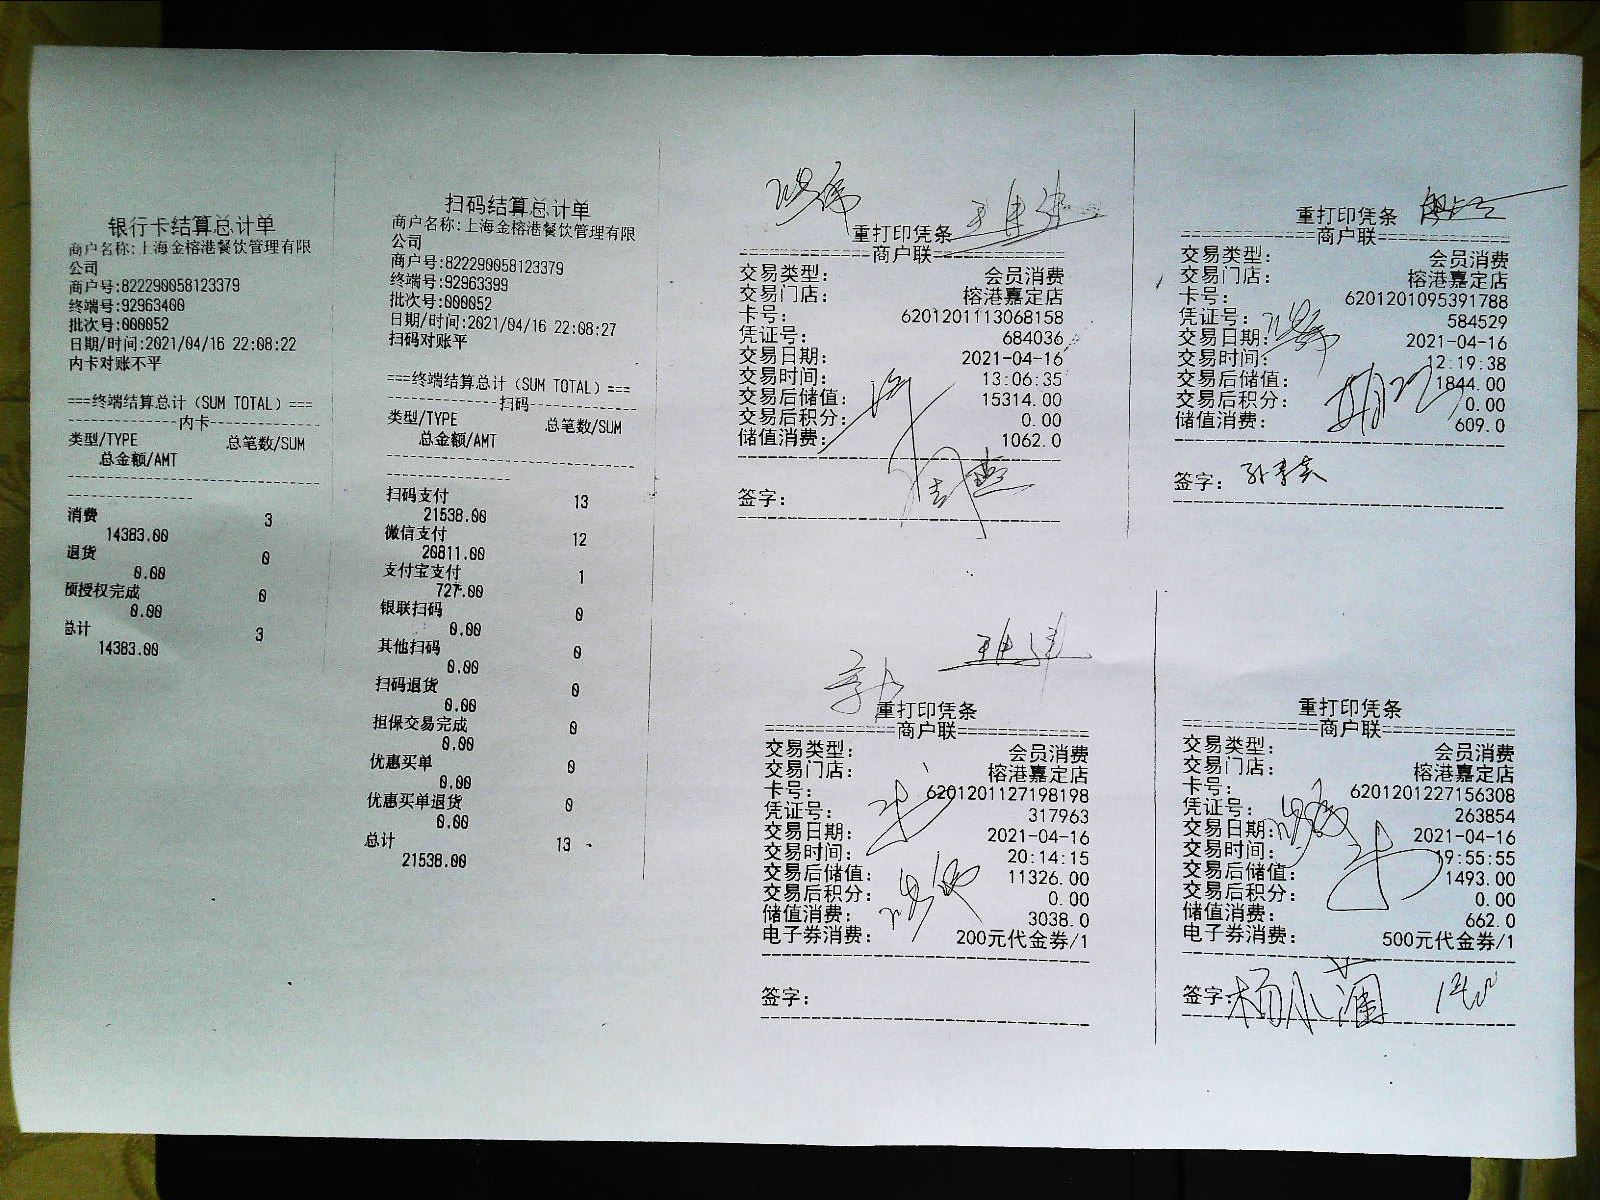 银行卡结算总计单
商户名称:上海金榕港餐饮管理有限
公司
商户号:822290058123379
终端号:92963400
批次号:000052
日期/时间:2021/04/16 22:08:22
内卡对账不平
===终端结算总计（SUM TOTAL）===
----------------内卡----------------
类型/TYPE 总笔数/SUM
总金额/AMT
消费 3
14383.00
退货 0
0.00
预授权完成 0
0.00
总计 3
14383.00
扫码结算总计单
商户名称:上海金榕港餐饮管理有限
公司
商户号:822290058123379
终端号:92963399
批次号:000052
日期/时间:2021/04/16 22:08:27
扫码对账平
===终端结算总计（SUM TOTAL）===
----------------扫码----------------
类型/TYPE 总笔数/SUM
总金额/AMT
扫码支付 13
21538.00
微信支付 12
20811.00
支付宝支付 1
727.00
银联扫码 0
0.00
其他扫码 0
0.00
扫码退货 0
0.00
担保交易完成 0
0.00
优惠买单 0
0.00
优惠买单退货 0
0.00
总计 13
21538.00
重打印凭条
=============商户联=============
交易类型: 会员消费
交易门店: 榕港嘉定店
卡号: 6201201113068158
凭证号: 684036
交易日期: 2021-04-16
交易时间: 13:06:35
交易后储值: 15314.00
交易后积分: 0.00
储值消费: 1062.0
签字:
重打印凭条
=============商户联=============
交易类型: 会员消费
交易门店: 榕港嘉定店
卡号: 6201201095391788
凭证号: 584529
交易日期: 2021-04-16
交易时间: 12:19:38
交易后储值: 1844.00
交易后积分: 0.00
储值消费: 609.0
签字:
重打印凭条
=============商户联=============
交易类型: 会员消费
交易门店: 榕港嘉定店
卡号: 6201201127198198
凭证号: 317963
交易日期: 2021-04-16
交易时间: 20:14:15
交易后储值: 11326.00
交易后积分: 0.00
储值消费: 3038.0
电子券消费: 200元代金券/1
签字:
重打印凭条
=============商户联=============
交易类型: 会员消费
交易门店: 榕港嘉定店
卡号: 6201201227156308
凭证号: 263854
交易日期: 2021-04-16
交易时间: 19:55:55
交易后储值: 1493.00
交易后积分: 0.00
储值消费: 662.0
电子券消费: 500元代金券/1
签字: